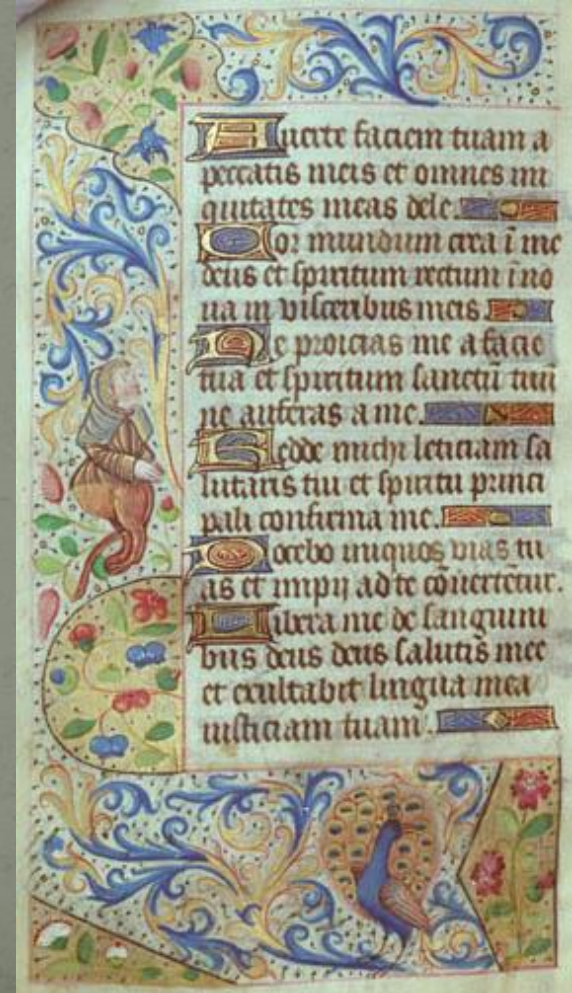 Auerte faciem tuam a
peccatis meis et omnes ini
quitates meas dele.
Cor mundum crea ī me
deus et spiritum rectum ī no
ua in visceribus meis.
Ne proicias me a facie
tua et spiritum sanctū tuū
ne auferas a me.
Redde michi leticiam sa
lutaris tui et spiritu princi
pali confirma me.
Docebo iniquos vias tu
as et impij ad te cōuertētur.
Libera me de sanguini
bus deus deus salutꝭ mee
et exultabit lingua mea
iusticiam tuam.